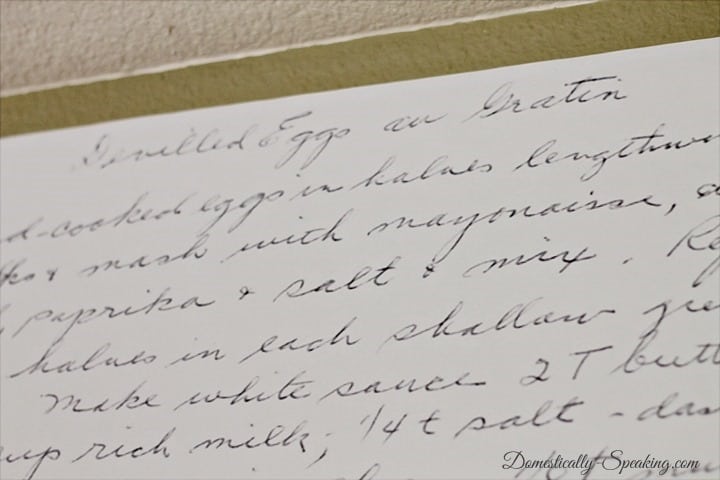 Devilled Eggs au Gratin
d-cooked eggs in halves lengthw
lks & mash with mayonaisse,
paprika & salt & mix. Re
halves in each shallow gre
Make white sauce 2 T butt
up rich milk; 1/4 t salt - das
Domestically-Speaking.com